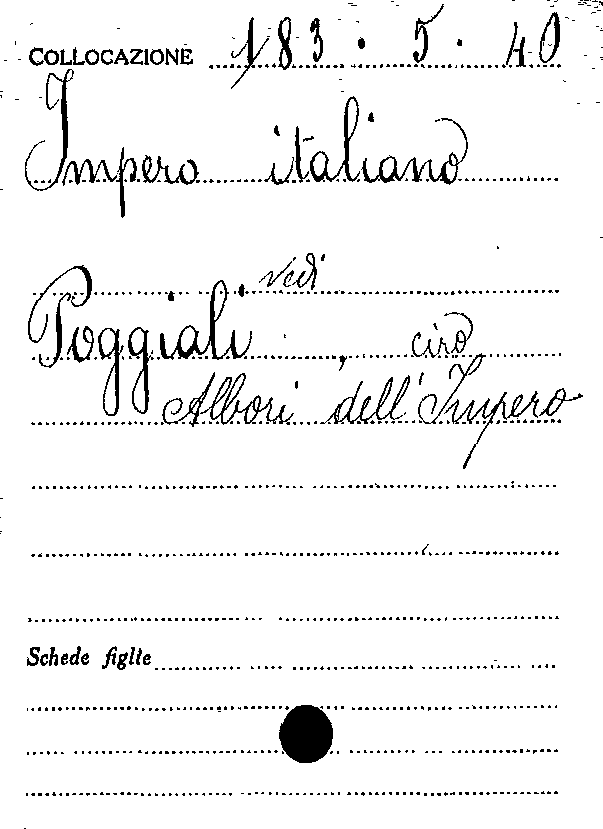 COLLOCAZIONE 183.5.40
Impero italiano
vedi
Poggiali, Ciro
Albori dell'Impero
Schede figlie